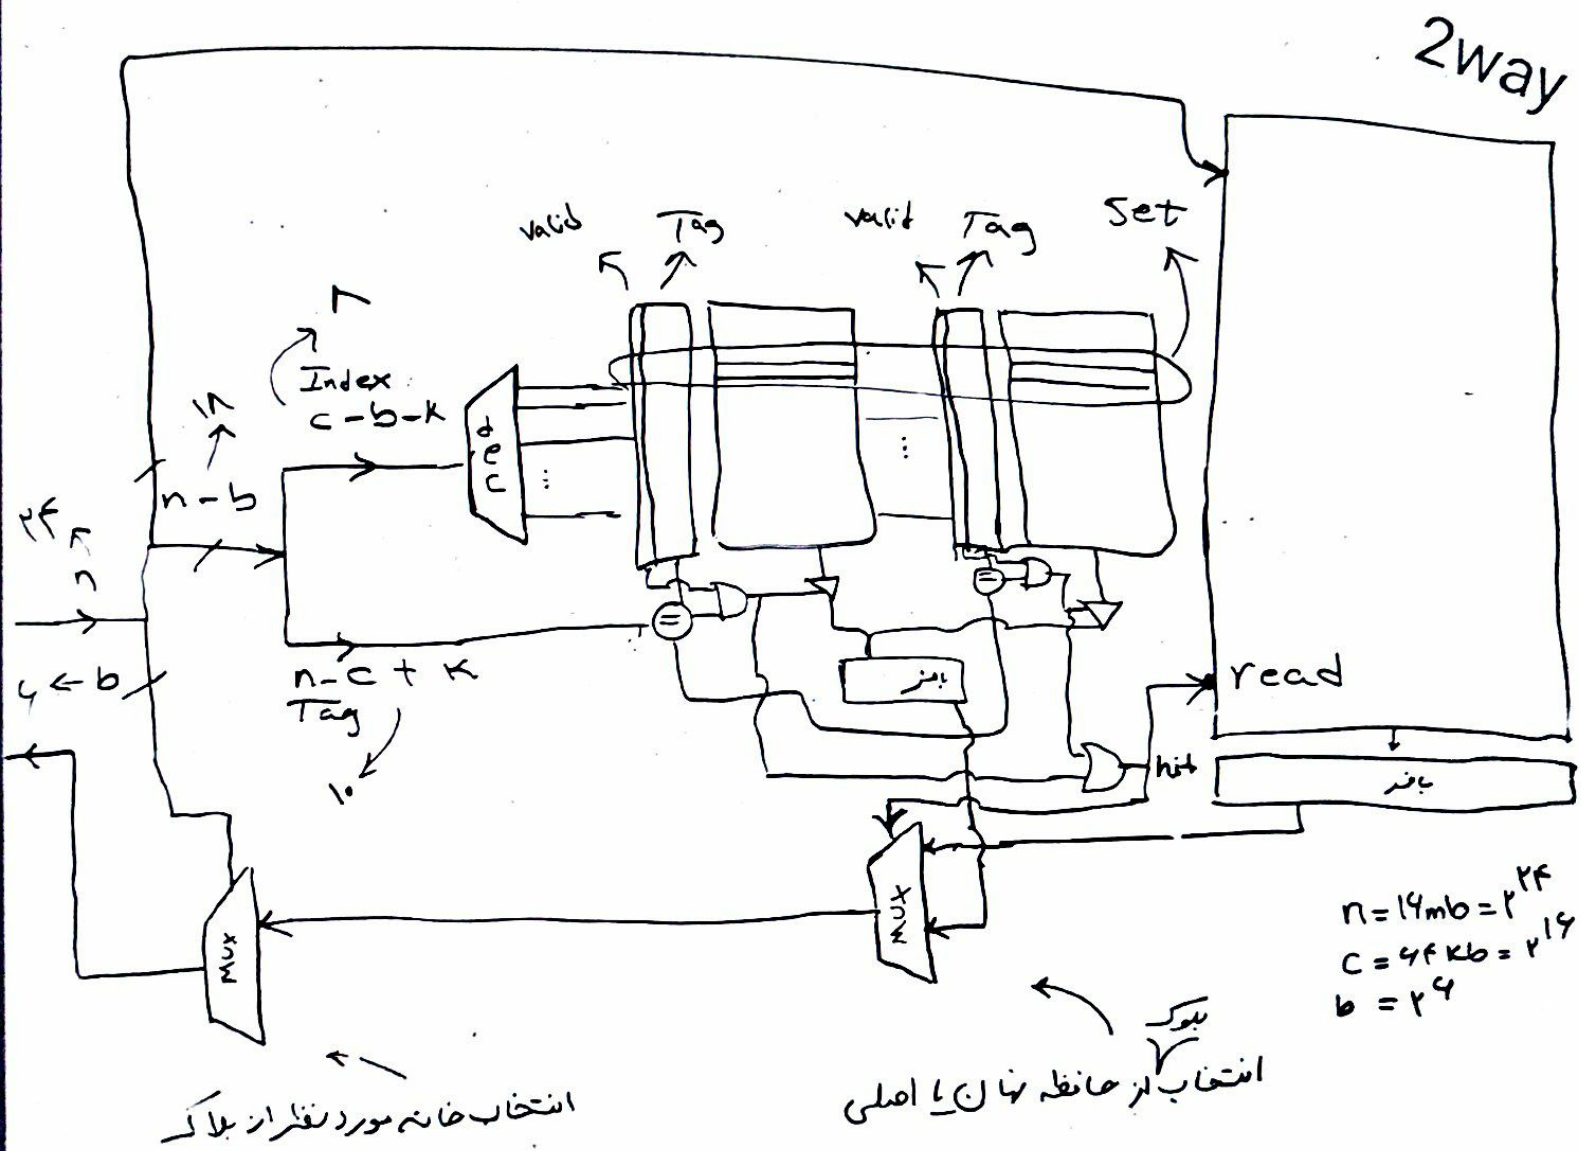 2way
valid
Tag
valid
Tag
Set
۸
Index
c-b-k
dec
...
...
۱۸
n-b
۲۴
n
۶ ← b
n-c+k
Tag
۱۰
بافر
read
hit
بافر
MUX
MUX
n=۱۶mb=۲^۲۴
c=۶۴kb=۲^۱۶
b=۲^۶
بلوک
انتخاب از حافظه نهان یا اصلی
انتخاب خانه مورد نظر از بلاک